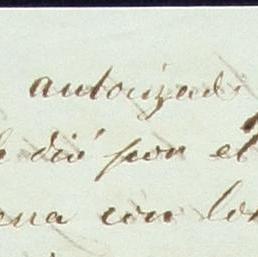 autorizad
dió por el
ena con los